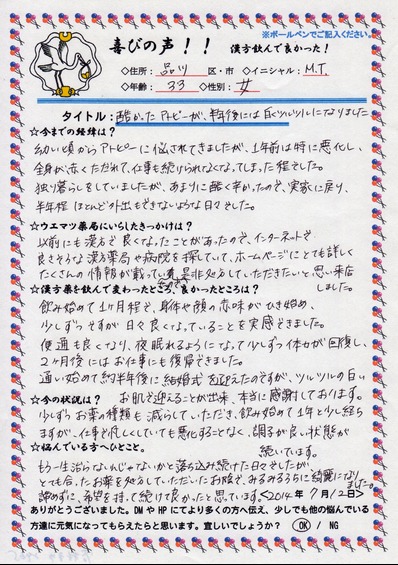 ※ボールペンでご記入ください。
喜びの声！！ 漢方飲んで良かった！
◇住所： 品川 区・市 ◇イニシャル： M.T.
◇年齢： 33 ◇性別： 女
タイトル： 酷かったアトピーが、半年後には白くツルツルになりました
☆今までの経緯は？
幼い頃からアトピーに悩されてきましたが、1年前は特に悪化し、
全身が赤くただれて、仕事も続けられなくなってしまった程でした。
独り暮らしをしていましたが、あまりに酷く辛かったので、実家に戻り、
半年程ほとんど外出もできないような日々でした。
☆ウエマツ薬局にいらしたきっかけは？
以前にも漢方で良くなったことがあったので、インターネットで
良さそうな漢方薬局や病院を探していて、ホームページにとても詳しく
たくさんの情報が載っていた為、是非処方していただきたいと思い来店
しました。
☆漢方薬を飲んで変わったところ、良かったところは？
飲み始めて1ヶ月程で、身体や顔の赤味がひき始め、
少しずつですが日々良くなっていることを実感できました。
便通も良くなり、夜眠れるようになって少しずつ体力が回復し、
2ヶ月後にはお仕事にも復帰できました。
通い始めて約半年後に結婚式を迎えたのですが、ツルツルの白い
お肌で迎えることが出来、本当に感謝しております。
☆今の状況は？
少しずつお薬の種類も減らしていただき、飲み始めて1年と少し経ち
ますが、仕事で忙しくしていても悪化することなく、調子が良い状態が
続いています。
☆悩んでいる方へひとこと。
もう一生治らないんじゃないかと落ち込み続けた日々でしたが、
とても合ったお薬を処方していただいたお陰で、みるみるうちに綺麗になり
ました。
諦めずに、希望を持って続けて良かったと思います。<2014年 7月12日>
ありがとうございました。DMやHPにてより多くの方へ伝え、少しでも他の悩んでいる
方達に元気になってもらえたらと思います。宜しいでしょうか？ OK / NG